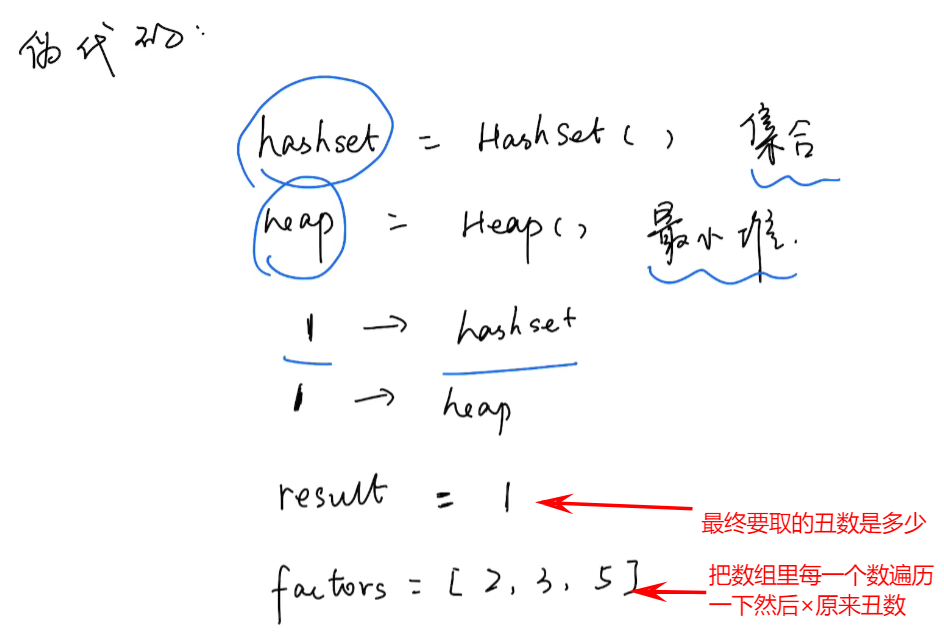 伪代码:
hashset = HashSet() 集合
heap = Heap() 最小堆.
1 → hashset
1 → heap
result = 1
最终要取的丑数是多少
factors = [2, 3, 5]
把数组里每一个数遍历
一下然后×原来丑数